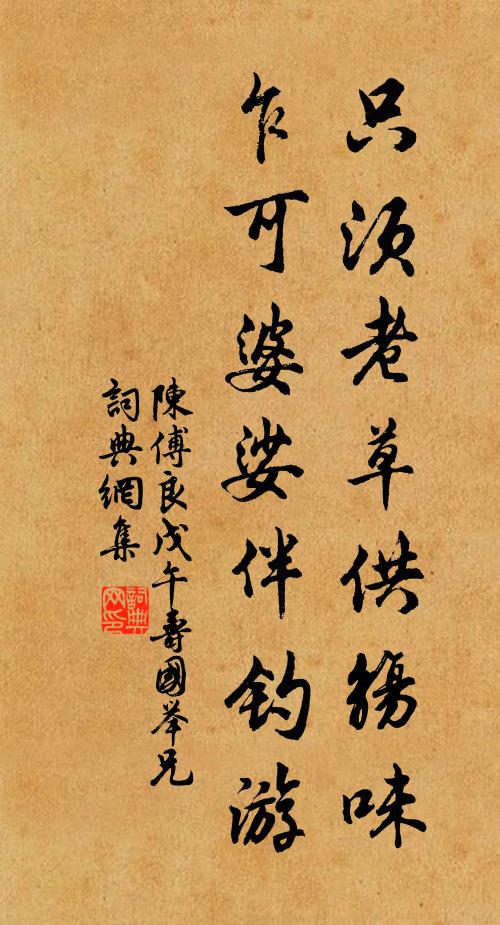 只須老草供觴味
乍可婆娑伴釣游
陳傅良戊午壽國舉兄
詞典網集
詞典网印